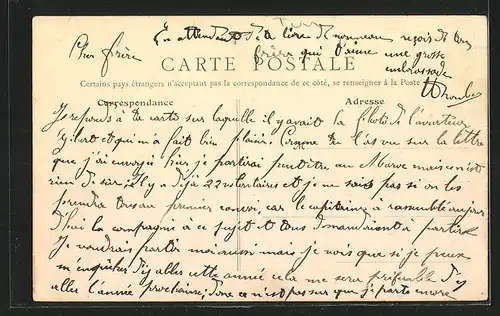 En attendant de te lire de nouveau reçois de ton
Cher frère
frère qui t'aime une grosse
embrassade
CARTE POSTALE
Certains pays étrangers n'acceptant pas la correspondance de ce côté, se renseigner à la Poste
Correspondance Adresse
Je reponds à ta carte sur laquelle il y avait la Photo de l'aviateur
et qui m'a fait bien plaisir. Comme tu l'as vu sur la lettre
que j'ai envoyé hier je partirai peut être au Maroc mais ce n'est
rien de sûr, Il y a déjà 22 volontaires et je ne sais pas si on les
prendra tous au premier convoi, car le capitaine a rassemblé aujour
d'hui la compagnie à ce sujet et tous demandaient à partir
Je voudrais partir moi aussi mais je vois que si je peux
m'empêcher d'y aller cette année cela me sera préférable d'y
aller l'année prochaine; donc ce n'est pas sur que je parte encore